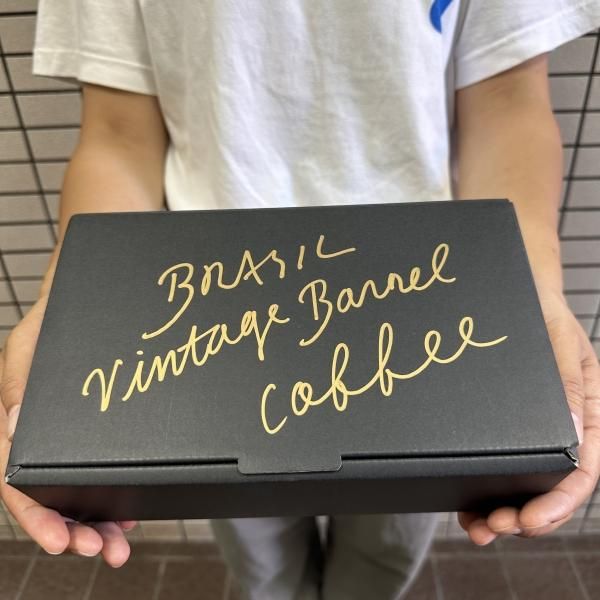 BRASIL
Vintage Barrel
Coffee